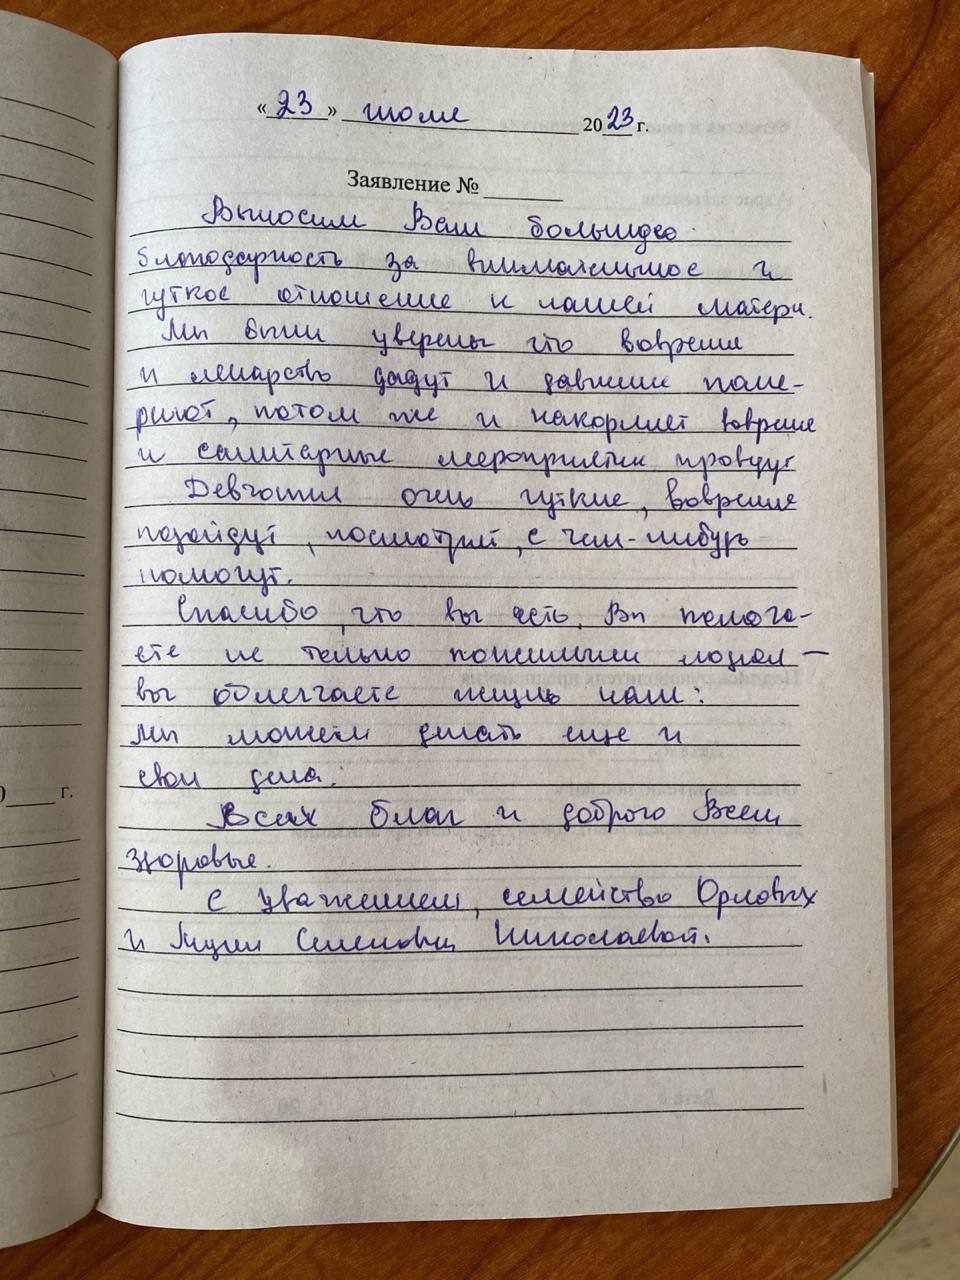 «23» июля 2023 г.
Заявление №
Выносим Вам большую
благодарность за внимательное и
чуткое отношение к нашей матери.
Мы были уверены что вовремя
и лекарство дадут и давление поме-
ряют, потом же и накормят вовремя
и санитарные мероприятия проведут
Девчонки очень чуткие, вовремя
подойдут, посмотрят, с чем-нибудь
помогут.
Спасибо, что вы есть, Вы помога-
ете не только пожилым людям —
вы облегчаете жизнь нам:
мы можем делать еще и
свои дела.
Всех благ и доброго Всем
здоровье.
С уважением, семейство Орловых
и Семеновны Николаевой.
0 г.